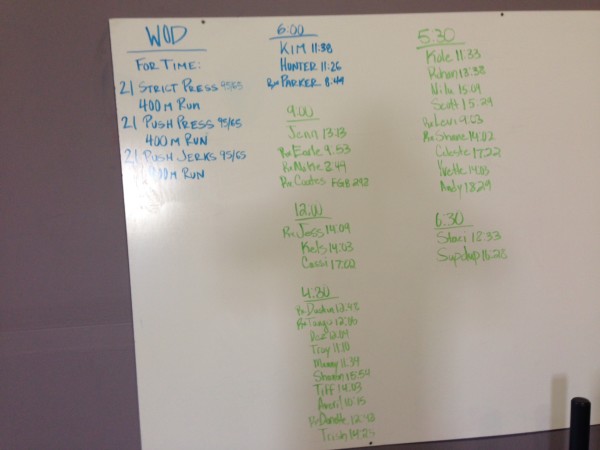 WOD
FOR TIME:
21 STRICT PRESS 95/65
400 M RUN
21 PUSH PRESS 95/65
400 M RUN
21 PUSH JERKS 95/65
400M RUN
6:00
KIM 11:38
HUNTER 11:26
Rx PARKER 8:49
9:00
Jenn 13:13
Rx Earle 9:53
Rx 8:49
Rx Coates FGB 292
12:00
Rx Jess 14:09
Kels 14:03
Cassi 17:02
4:30
Rx 12:43
Rx 12:06
12:04
Troy 11:10
Manny 11:34
Shannon 15:54
Tiff 14:03
10:15
Rx Danette 12:43
Trish 14:25
5:30
Kole 11:33
Rohan 13:38
15:09
Scott 15:29
Rx Levi 9:53
Rx Shane 14:02
Celeste 17:22
Yvette 14:03
Andy 18:29
6:30
Staci 18:33
16:28